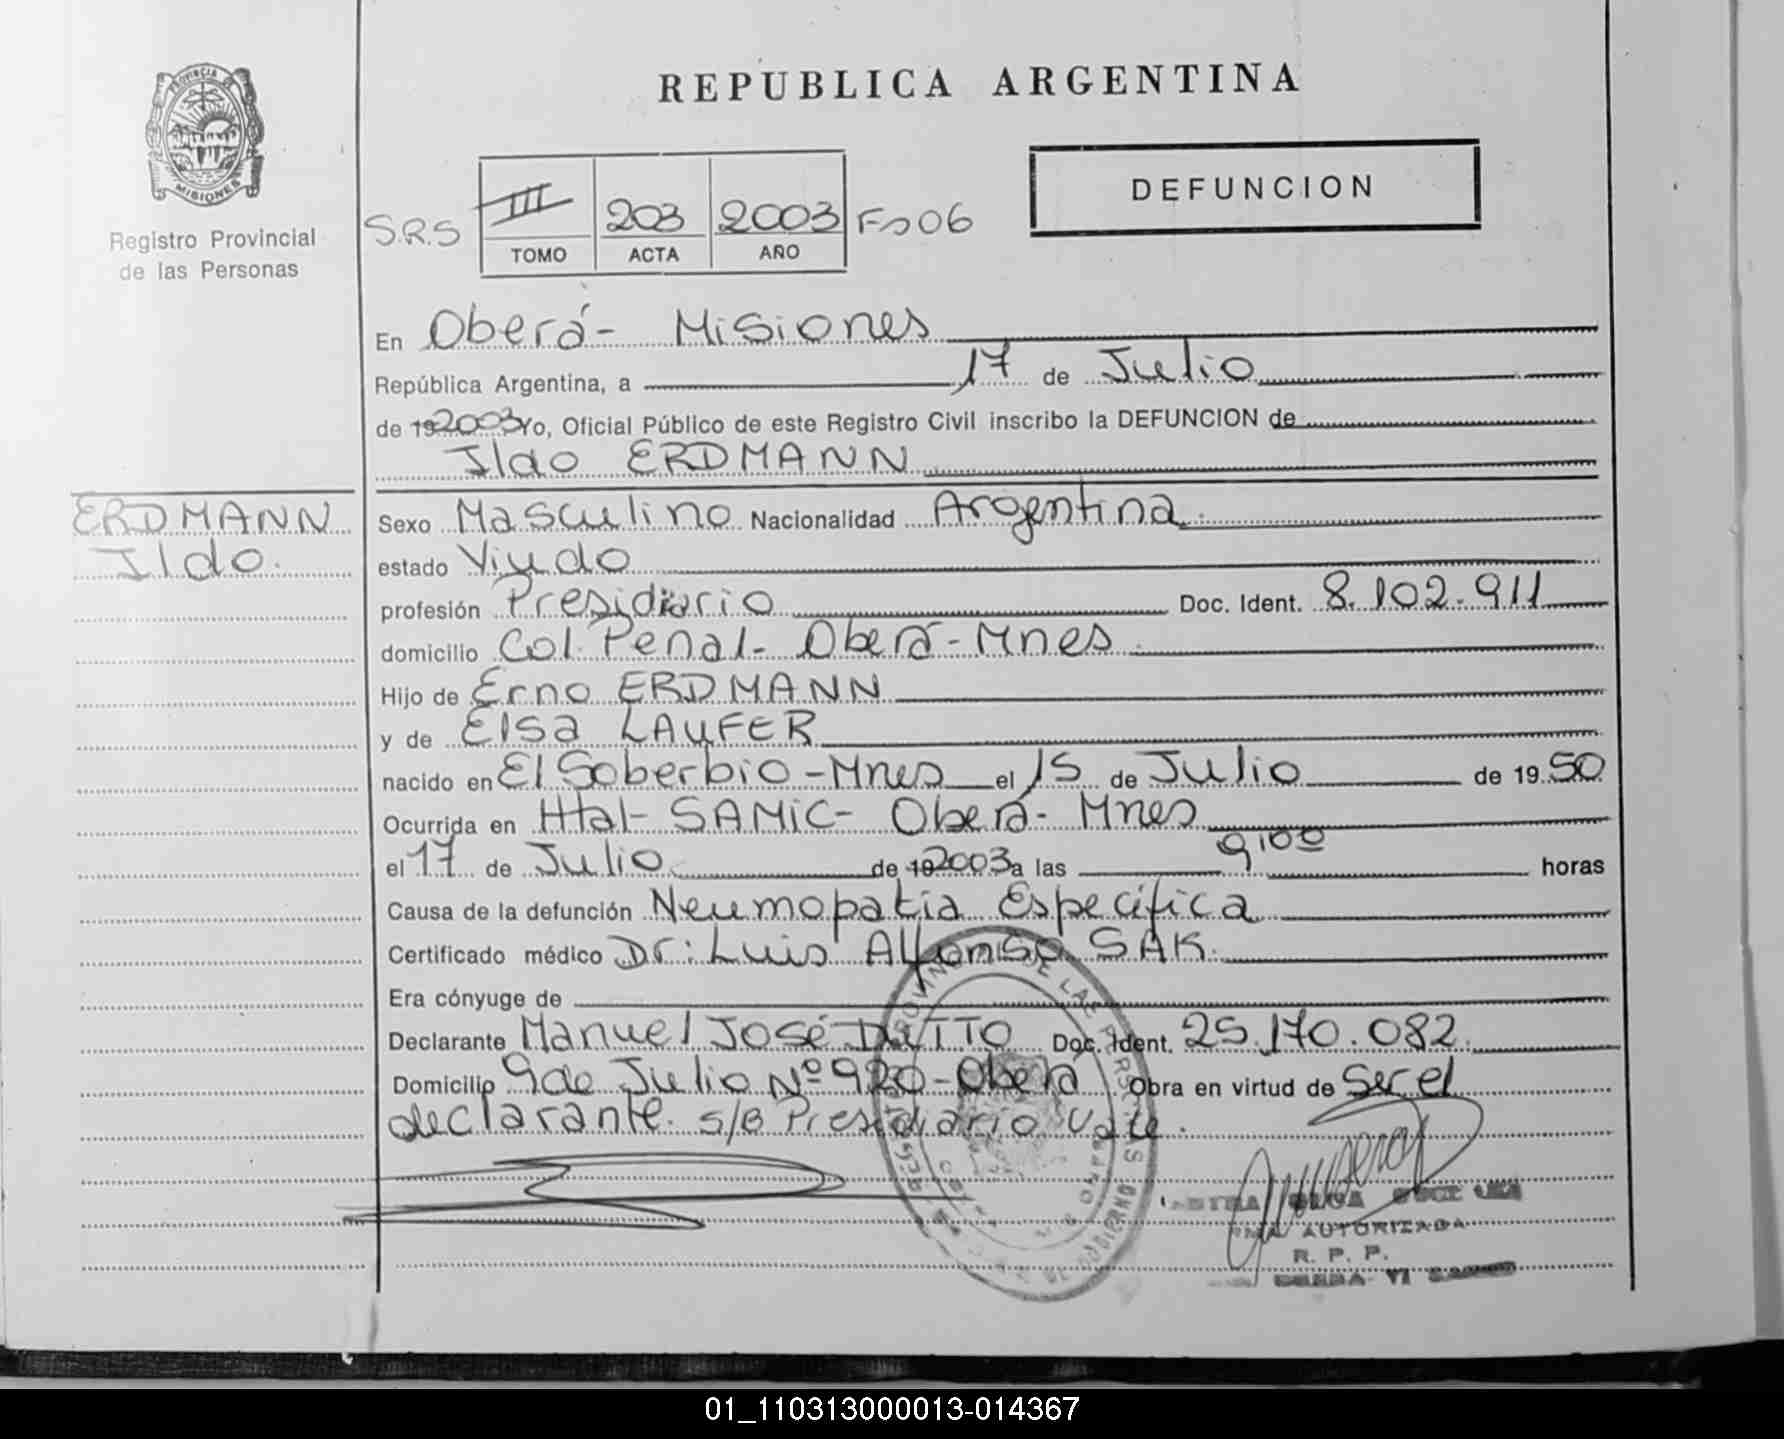 PROVINCIA
MISIONES
Registro Provincial
de las Personas
REPUBLICA ARGENTINA
DEFUNCION
S.R.S III 203 2003 Fo 06
TOMO ACTA AÑO
En Oberá- Misiones
República Argentina, a 17 de Julio
de 192003 Yo, Oficial Público de este Registro Civil inscribo la DEFUNCION de
Ildo ERDMANN
ERDMANN
Ildo.
Sexo Masculino Nacionalidad Argentina.
estado Viudo
profesión Presidiario Doc. Ident. 8.102.911
domicilio Col. Penal- Oberá-Mnes.
Hijo de Erno ERDMANN
y de Elsa LAUFER
nacido en El Soberbio-Mnes el 15 de Julio de 1950
Ocurrida en Htal- SAMIC- Oberá- Mnes
el 17 de Julio de 192003 a las 9:00 horas
Causa de la defunción Neumopatia Específica
Certificado médico Dr: Luis Alfonso SAK.
Era cónyuge de
Declarante Manuel José Doc. Ident. 25.170.082
Domicilio 9 de Julio Nº 920-Oberá Obra en virtud de Ser el
declarante. s/B Presidiario Vale.
AUTORIZADA
R. P. P.
01_110313000013-014367